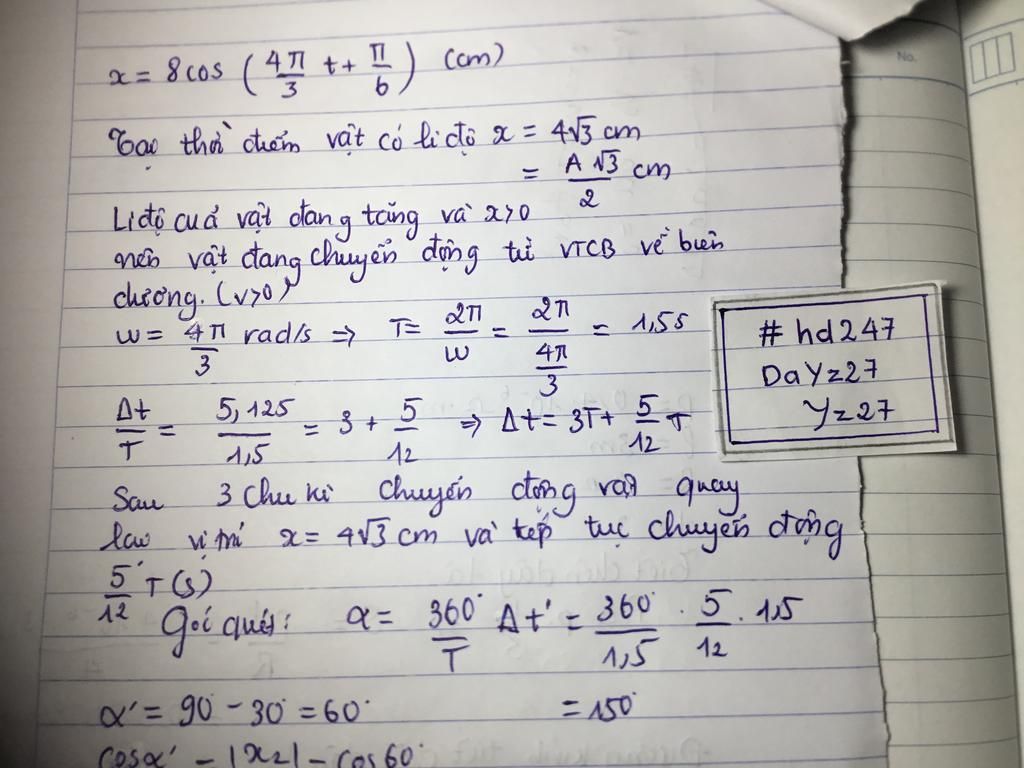 x = 8cos (4π/3 t + π/6) (cm)
Tại thời điểm vật có li độ x = 4√3 cm
= A√3/2 cm
Li độ của vật đang tăng và x>0
nên vật đang chuyển động từ VTCB về biên
dương. (v>0)
ω = 4π/3 rad/s ⇒ T = 2π/ω = 2π/(4π/3) = 1,5s
Δt/T = 5,125/1,5 = 3 + 5/12 ⇒ Δt = 3T + 5/12 T
Sau 3 chu kì chuyển động vật quay
lại vị trí x = 4√3 cm và tiếp tục chuyển động
5/12 T(s)
Góc quét: α = 360°/T Δt' = 360°/1,5 . 5/12 . 1,5
α' = 90° - 30° = 60° = 150°
cosα' = |x2| = cos60°
# hd247
DaYz27
Yz27
No.